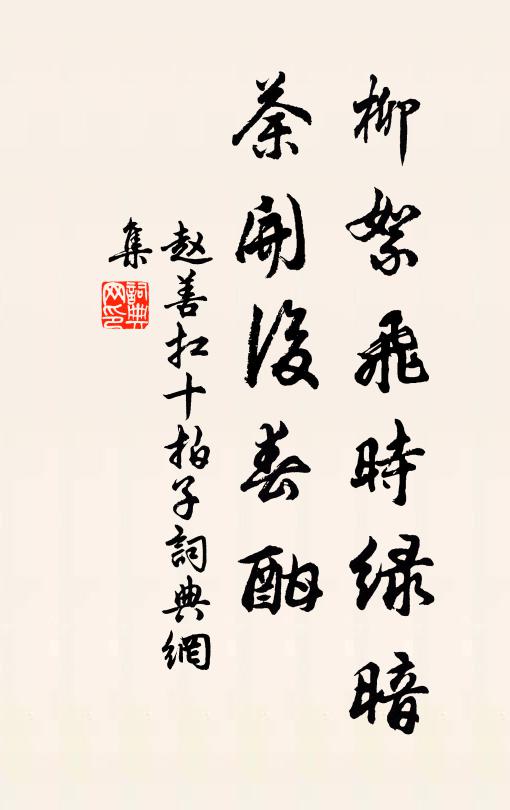 柳絮飛時绿暗
荼開後春酣
赵善扛十拍子詞典網
集
詞典
网印